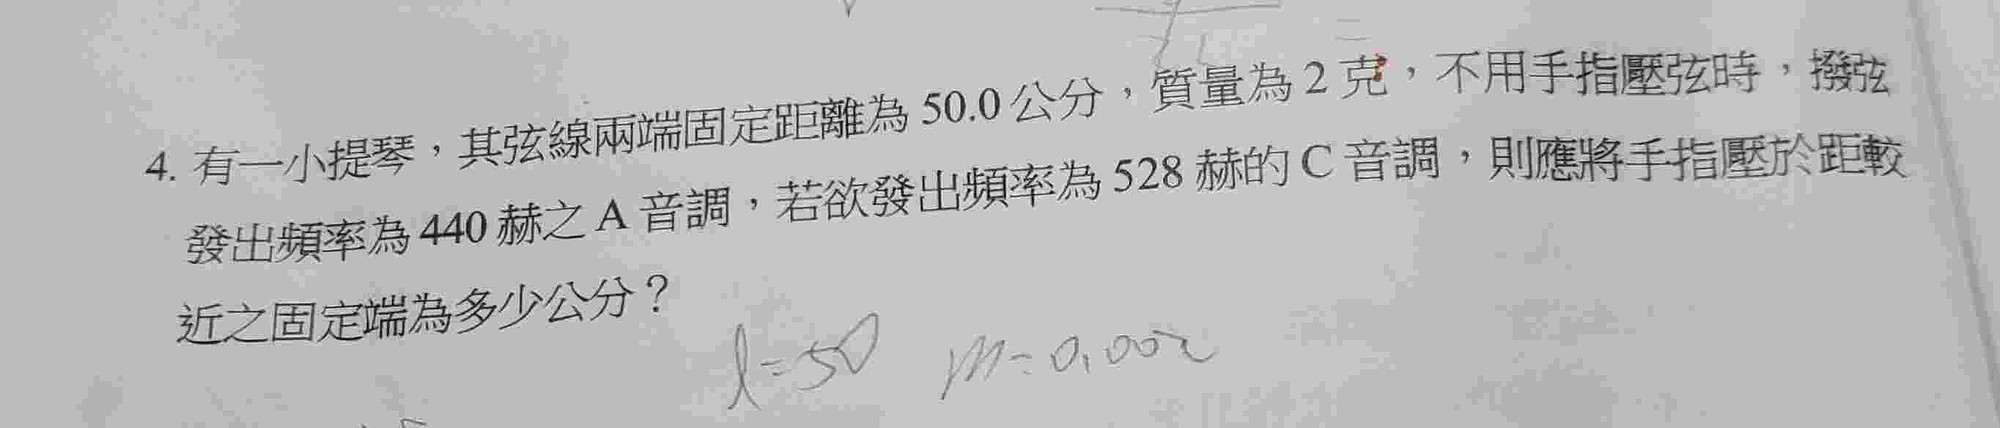 4. 有一小提琴，其弦線兩端固定距離為 50.0 公分，質量為 2 克，不用手指壓弦時，撥弦
發出頻率為 440 赫之 A 音調，若欲發出頻率為 528 赫的 C 音調，則應將手指壓於距較
近之固定端為多少公分？
l=50 m=0.002